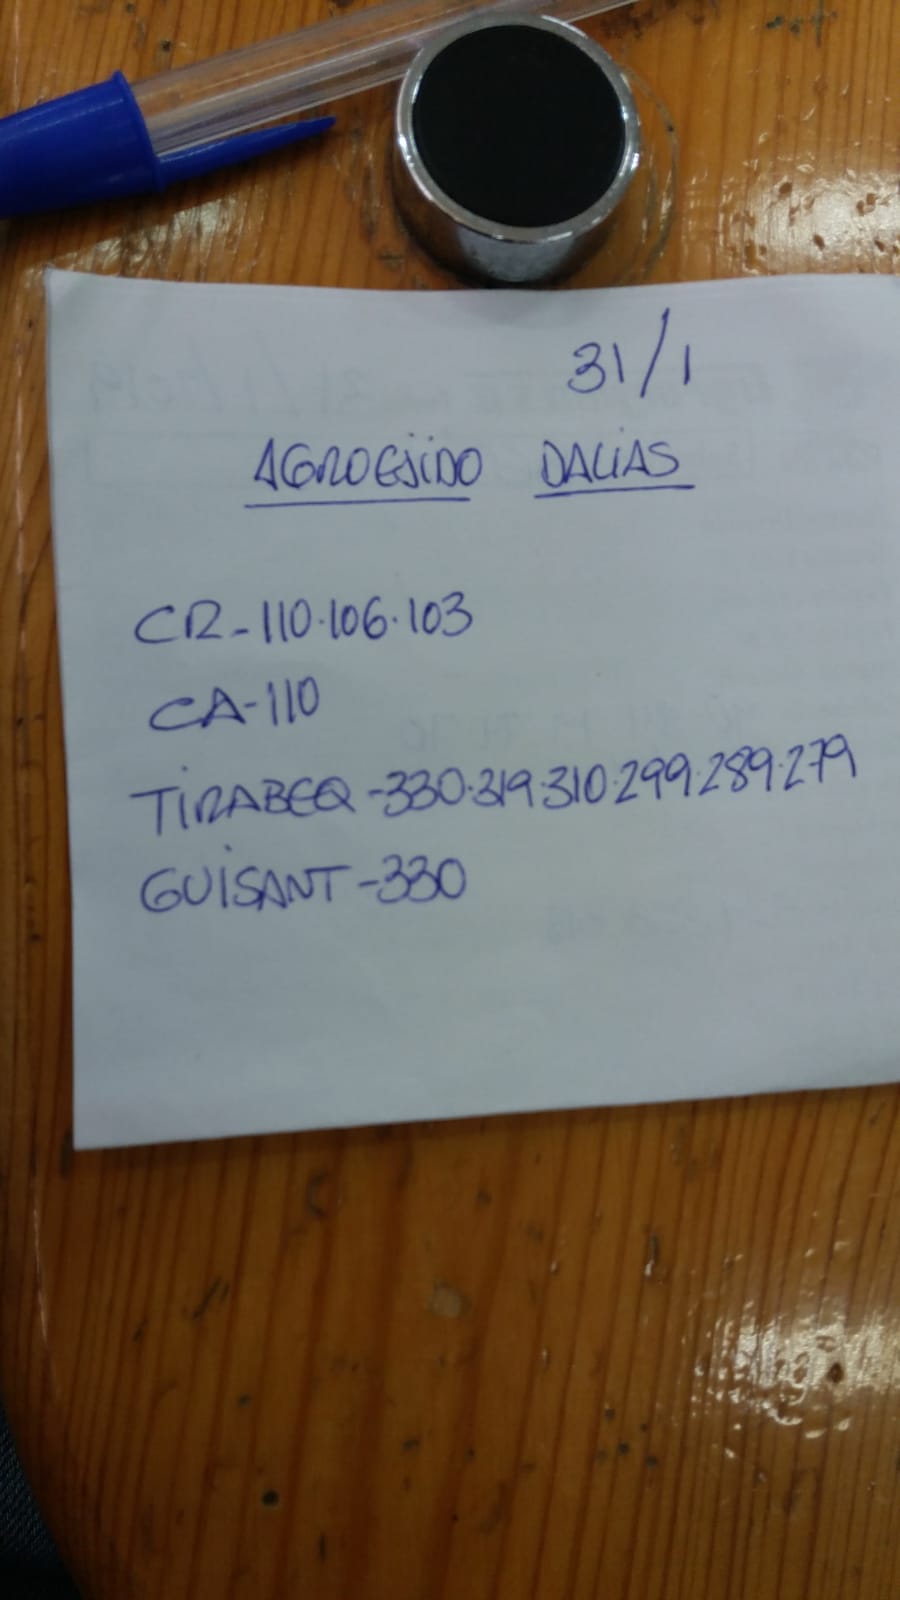 31/1
AGROEJIDO DALIAS
CR-110.106.103
CA-110
TIRABEQ-330.319.310.299.289.279
GUISANT-330